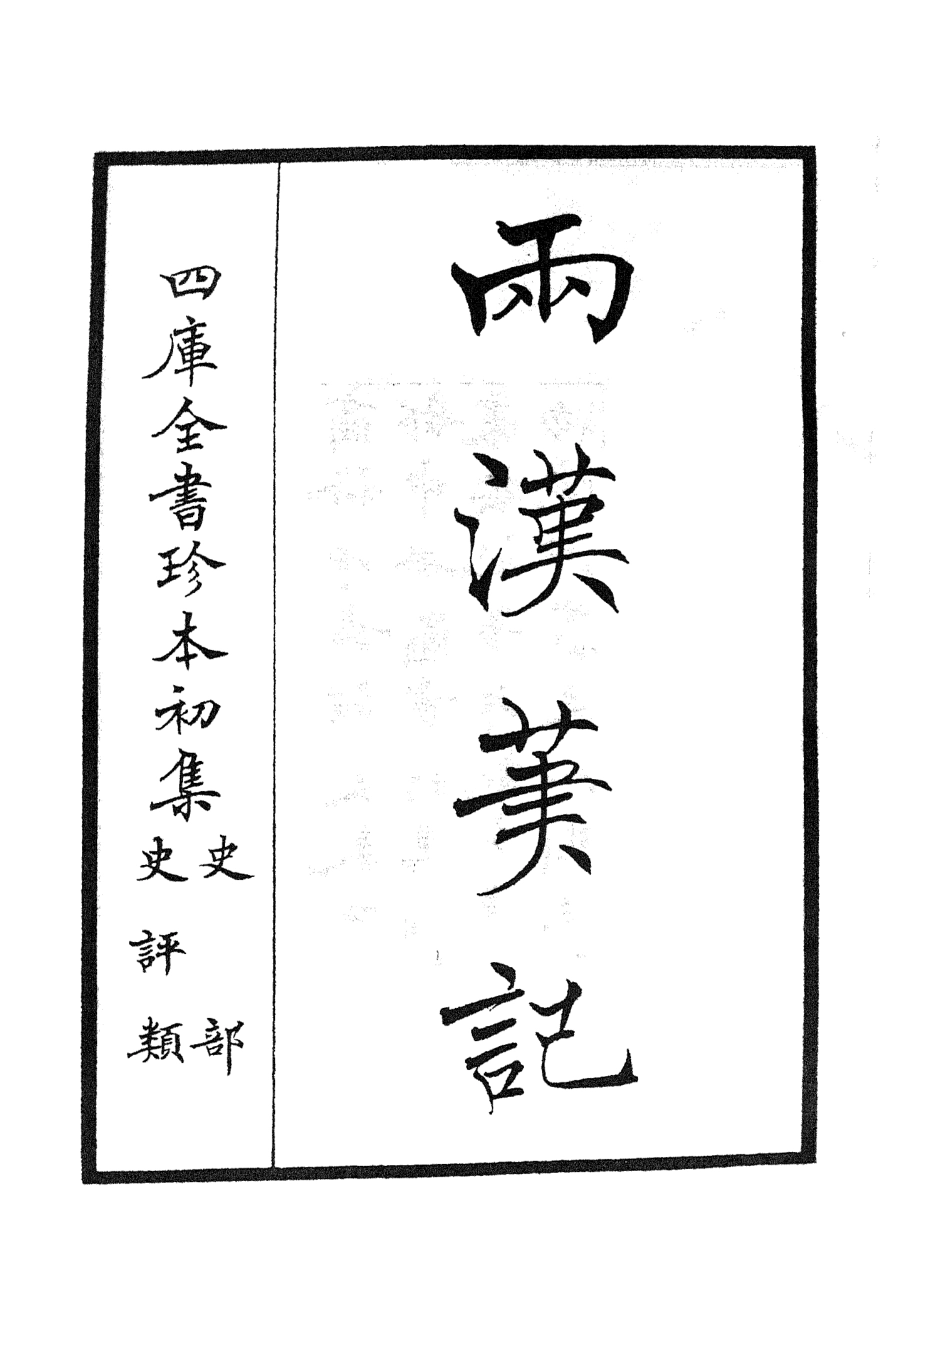 兩漢筆記
四庫全書珍本初集
史部
史評類